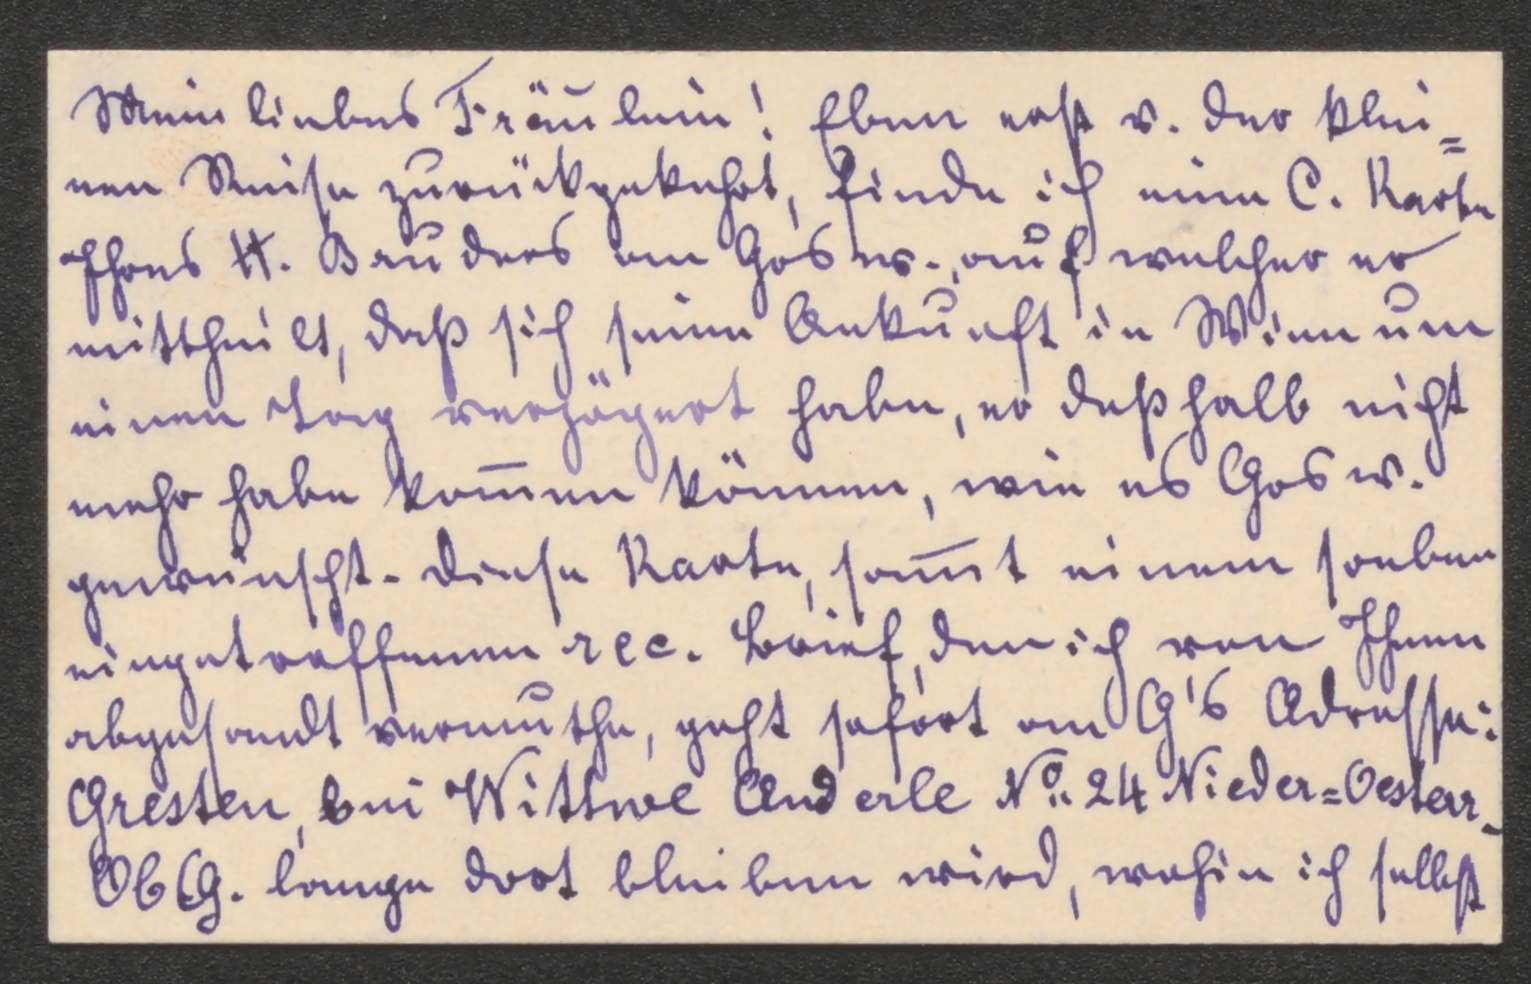 Mein liebes Fräulein! Eben erst v. der klei=
nen Reise zurückgekehrt, finde ich eine C. Karte
Ihres H. Bruders an Gosw., auf welcher er
mittheilt, daß sich seine Ankunft in Wien um
einen Tag verzögert habe, er deßhalb nicht
mehr habe kom̅en können, wie es Gosw.
gewünscht. Diese Karte, som̅t einem soeben
eingetroffenen rec. Brief, den ich von Ihnen
abgesandt vermuthe, geht sofort an G's Adresse:
Gresten, bei Wittwe Anderle No. 24 Nieder=Oesterr.
Ob G. lange dort bleiben wird, wohin ich selbst